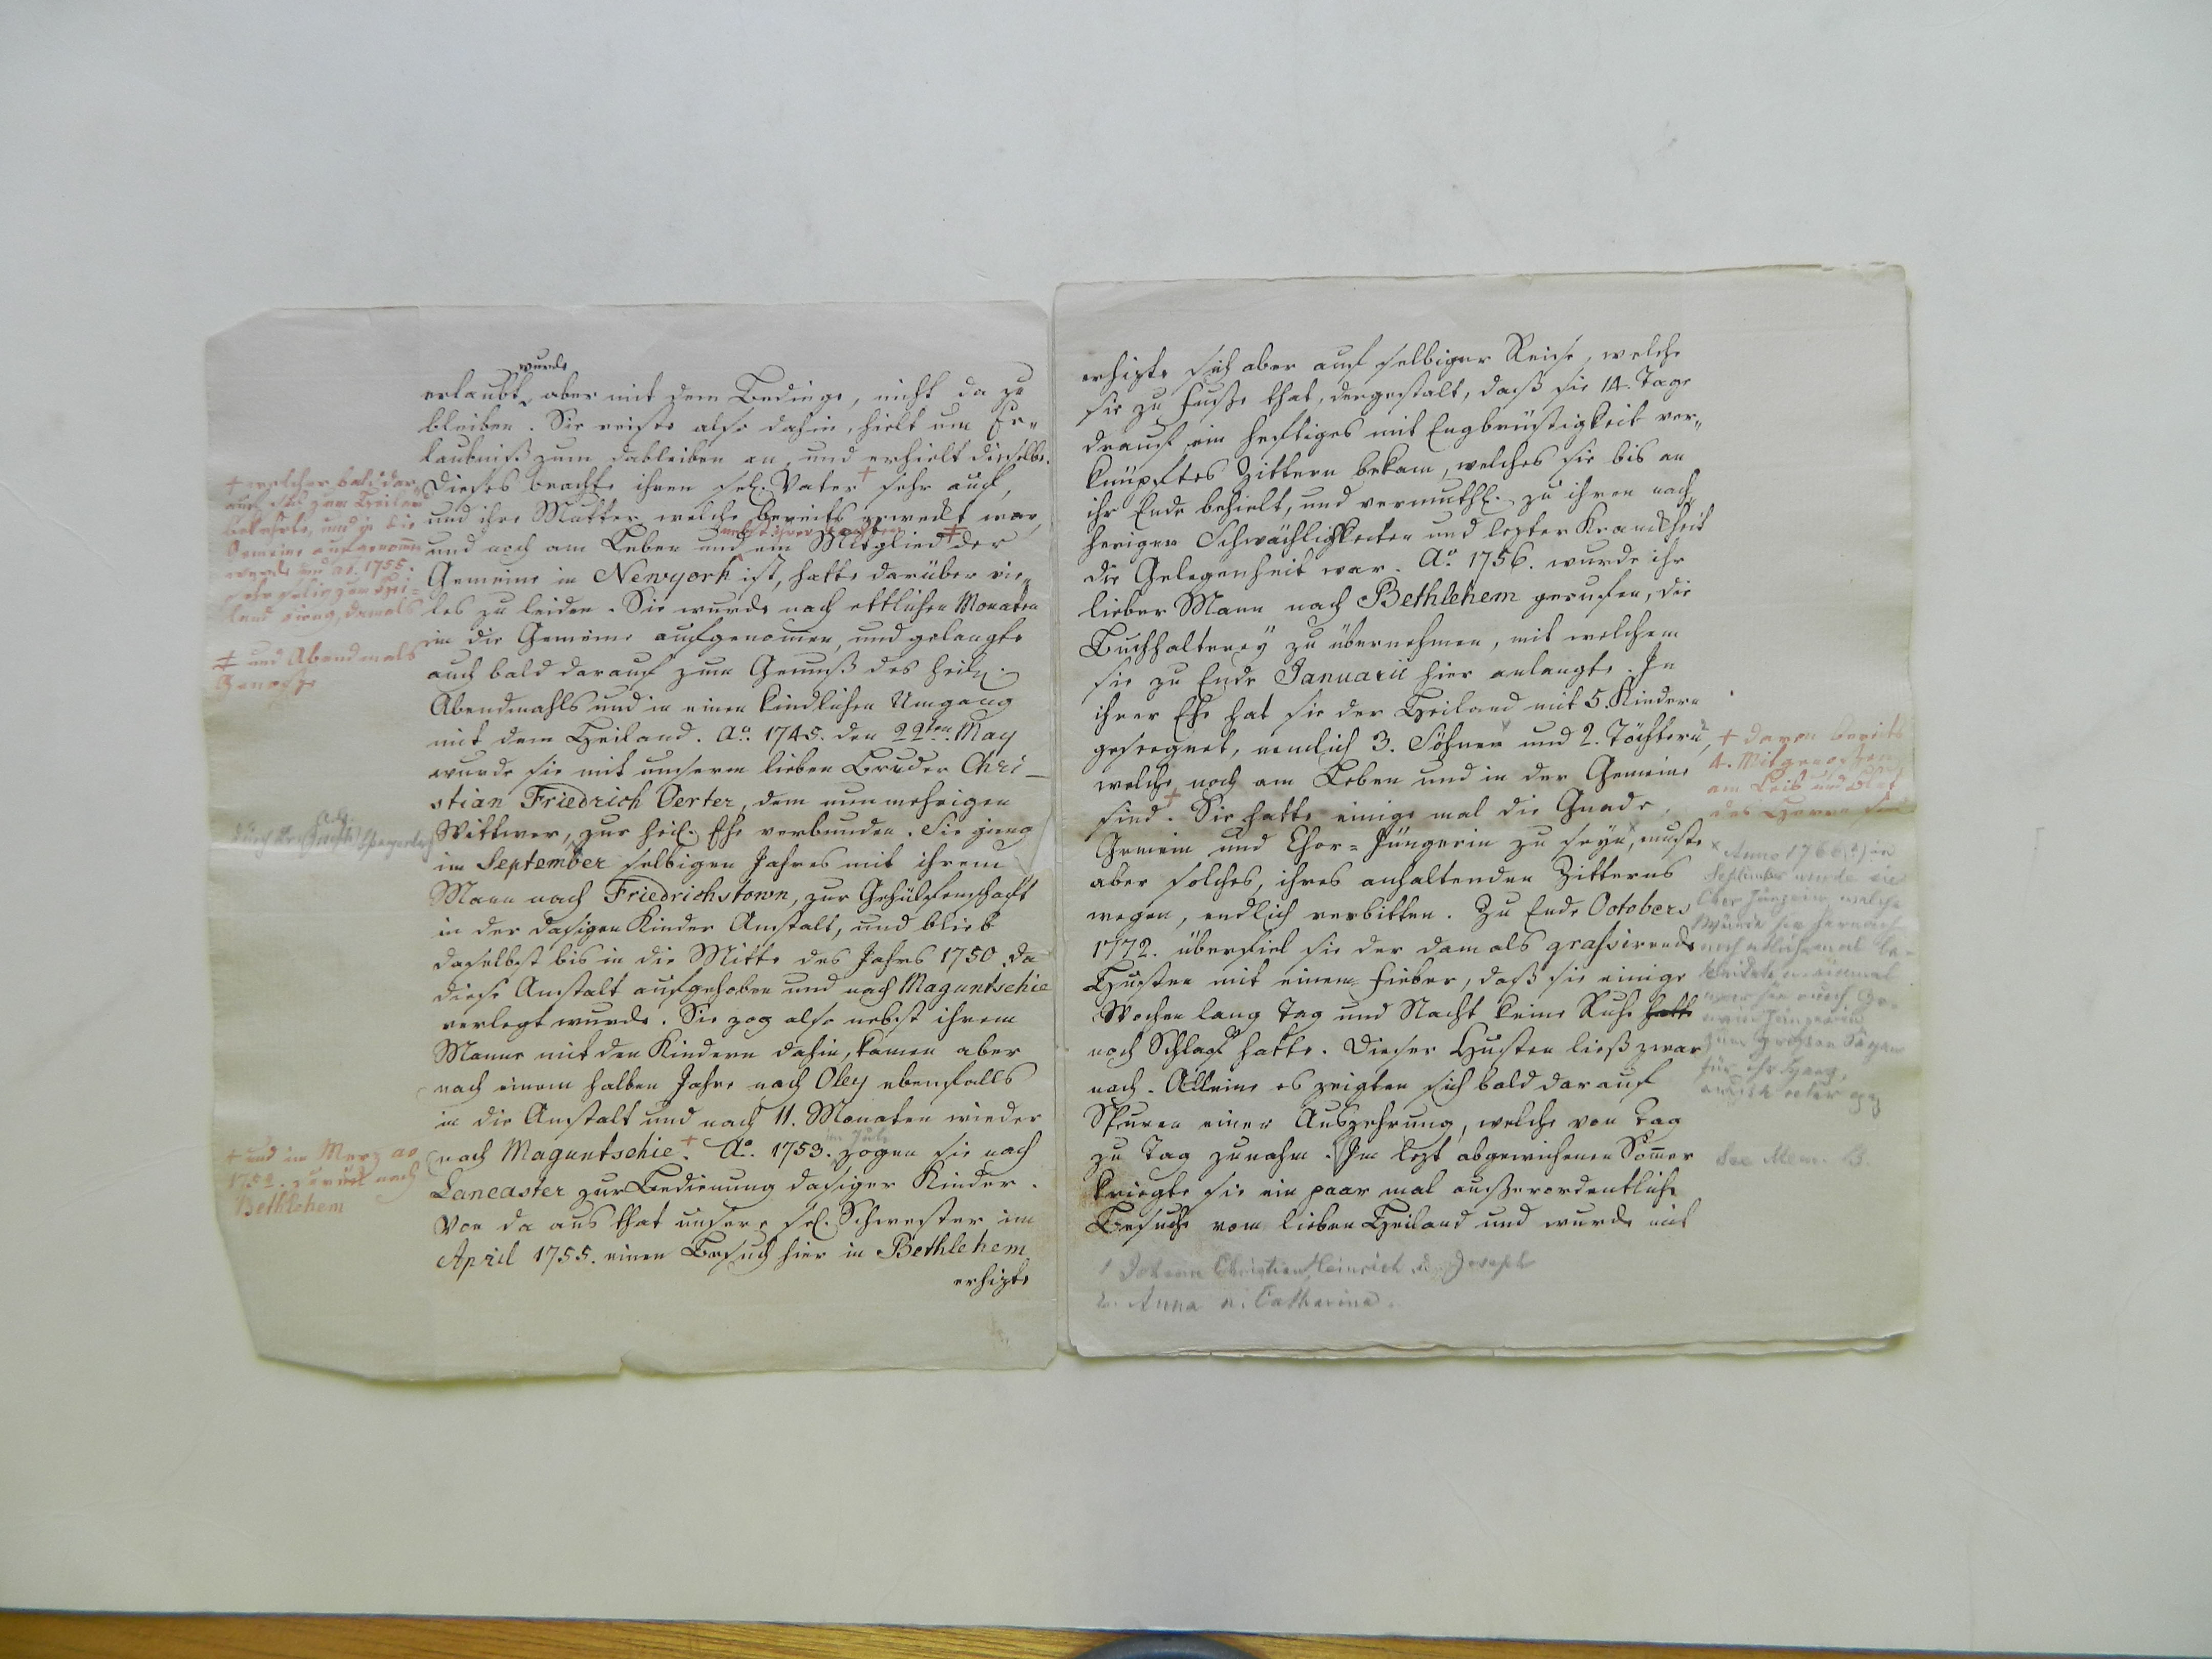 wurde
erlaubt, aber mit dem Bedinge, nicht da zu
bleiben. Sie reiste also dahin, hielt um Er„
laubniß zum dableiben an, und erhielt dieselbe.
Dieses brachte ihren sel. Vater + sehr auf,
und ihre Mutter, welche bereits erweckt war,
nebst ihrer
und noch am Leben und ein Mitglied ‡ der
Gemeine in Newyork ist, hatte darüber vie„
les zu leiden. Sie wurde nach ettlichen Monaten
in die Gemeine aufgenomen, und gelangte
auch bald darauf zum Genuß des heil.
Abendmahls und in einen kindlichen Umgang
mit dem Heiland. Ao. 1745. den 22ten May
wurde sie mit unserm lieben Bruder Chri-
stian Friedrich Oerter, dem nunmehrigen
Wittwer, zur heil. Ehe verbunden. Sie gieng
im September selbigen Jahres mit ihrem
Mann nach Friedrichstown, zur Gehülfenschaft
in der dasigen Kinder Anstalt, und blieb
daselbst bis in die Mitte des Jahrs 1750, da
diese Anstalt aufgehoben und nach Maguntschie
verlegt wurde. Sie zog also nebst ihrem
Manne mit den Kindern dahin, kamen aber
nach einem halben Jahre nach Oley ebenfalls
in die Anstalt und nach 11. Monaten wieder
im July
nach Maguntschie. + Ao. 1753. zogen sie nach
Lancaster zur Bedienung dasiger Kinder.
Von da aus that unsere sel. Schwester im
April 1755. einen Besuch hier in Bethlehem
erhizte
+ welcher bald dar„
auf sich zum Heiland
bekehrte, und in die
Gemeine aufgenomen
wurde und ao. 1755.
sehr selig zum Hei-
land gieng, damals
‡ und Abendmals
Genosse
durch Br. Spangenberg
+ und im Merz ao
1752. zurück nach
Bethlehem
erhizte sich aber auf selbiger Reise, welche
sie zu Fuße that, dergestalt, daß sie 14. Tage
drauf ein heftiges mit Engbrüstigkeit ver„
knüpftes Zittern bekam, welches sie bis an
ihr Ende behielt, und vermuthl. zu ihren nach„
herigen Schwächlichkeiten und lezter Krankheit
die Gelegenheit war. Ao. 1756. wurde ihr
lieber Mann nach Bethlehem gerufen, die
Buchhalterey zu übernehmen, mit welchem
sie zu Ende Januarii hier anlangte. In
ihrer Ehe hat sie der Heiland mit 5. Kindern
gesegnet, nemlich 3. Söhnen und 2. Töchtern,
welche noch am Leben und in der Gemeine
sind. + Sie hatte einige mal die Gnade,
Gemein und Chor-Jüngerin zu seyn, muste
aber solches, ihres anhaltenden Zitterns
wegen, endlich verbitten. Zu Ende Octobers
1772. überfiel sie der damals grassirende
Husten mit einem Fieber, daß sie einige
Wochen lang Tag und Nacht keine Ruhe hatte
noch Schlaf hatte. Dieser Husten ließ zwar
nach. Alleine es zeigten sich bald darauf
Spuren einer Auszehrung, welche von Tag
zu Tag zunahm. Im lezt abgewichenen Somer
kriegte sie ein paar mal außerordentliche
Besuche vom lieben Heiland und wurde mit
+ davon bereits
4. Mitgenossen
am Leib und Blut
des Herrn sind
x Anno 1766(?) im
September wurde sie
Chor Jüngerin, welche
Würde sie hernach
noch etliche mal be-
kleidete u. einmal
war sie auch Ge-
mein Jüngerin
zum großen Segen
für ihr Herz,
See Mem. B.
1 Johann Christian, Heinrich u. Joseph
2. Anna u. Catharina.